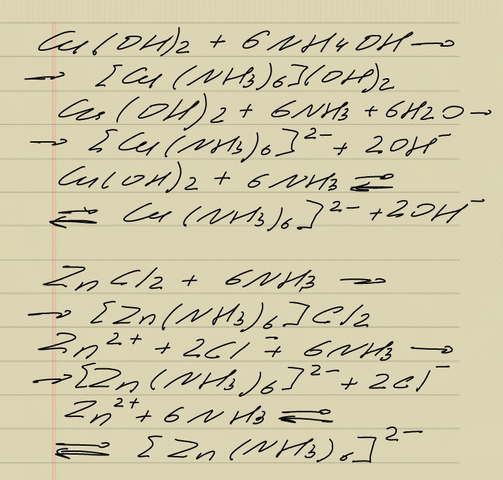 Cu(OH)2 + 6NH4OH →
→ [Cu(NH3)6](OH)2
Cu(OH)2 + 6NH3 + 6H2O →
→ [Cu(NH3)6]²⁻ + 2OH⁻
Cu(OH)2 + 6NH3 ⇄
⇄ Cu(NH3)6]²⁻ + 2OH⁻
ZnCl2 + 6NH3 →
→ [Zn(NH3)6]Cl2
Zn²⁺ + 2Cl⁻ + 6NH3 →
→ [Zn(NH3)6]²⁻ + 2Cl⁻
Zn²⁺ + 6NH3 ⇄
⇄ [Zn(NH3)6]²⁻